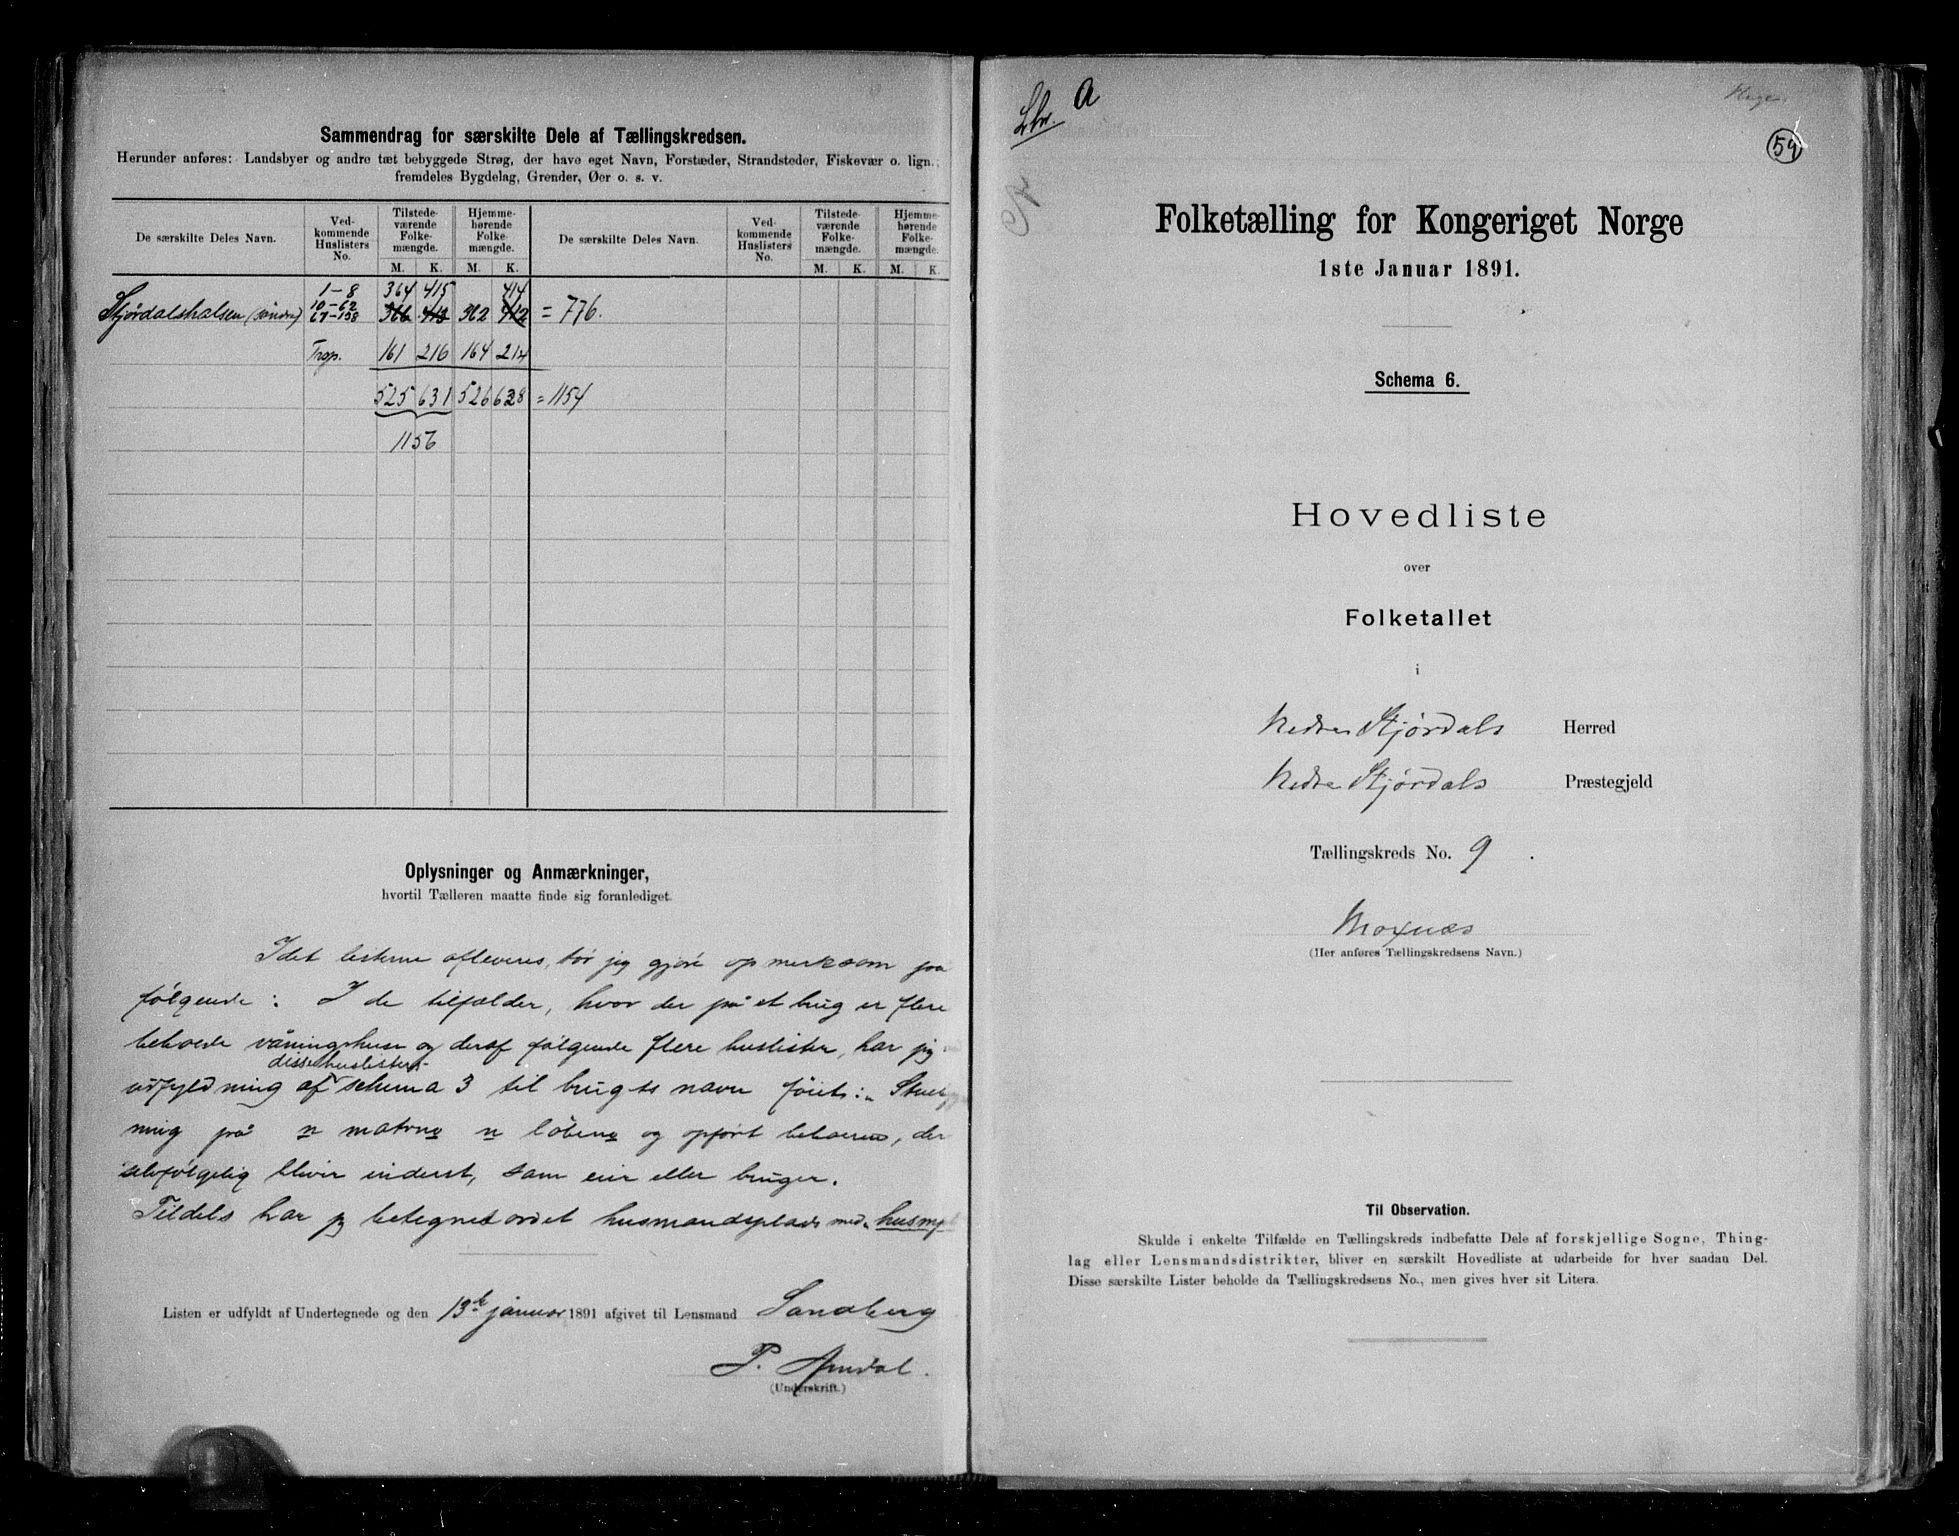 Sammendrag for særskilte Dele af Tællingskredsen.
Herunder anføres: Landsbyer og andre tæt bebyggede Strøg, der have eget Navn, Forstæder, Strandsteder, Fiskevær o. lign.;
fremdeles Bygdelag, Grender, Øer o. s. v.
De særskilte Deles Navn. Ved-kommende Huslisters No. Tilstede-værende Folke-mængde. Hjemme-hørende Folke-mængde. De særskilte Deles Navn. Ved-kommende Huslisters No. Tilstede-værende Folke-mængde. Hjemme-hørende Folke-mængde.
M. K. M. K. M. K. M. K.
1-8 364 415 414
Stjørdalshalsen (søndre) 10-62 67-158 366 413 362 412 = 776.
Trop. 161 216 164 214
525 631 526 628 = 1154
1156
Oplysninger og Anmærkninger,
hvortil Tælleren maatte finde sig foranlediget.
Idet listerne afleveres, tør jeg gjøre opmerksom paa
følgende: I de tilfælder, hvor der på et brug er flere
beboede våningshuse og deraf følgende flere huslister, har jeg
disse huslister
udfyldning af schema 3 til brugets navn føiet: „
ning på n matrno n løbeno og opført beboerne, der
selvfølgelig bliver inderst, som eier eller bruger.
Tildels har jeg betegnet ordet husmandsplads med „husmpl
Listen er udfyldt af Undertegnede og den 13de januar 1891 afgivet til Lensmand Sandberg
P. Arndal.
(Underskrift.)
Lbr. A
59
Folketælling for Kongeriget Norge
1ste Januar 1891.
Schema 6.
Hovedliste
over
Folketallet
i
Nedre Stjørdals Herred
Nedre Stjørdals Præstegjeld
Tællingskreds No. 9.
Moxnæs
(Her anføres Tællingskredsens Navn.)
Til Observation.
Skulde i enkelte Tilfælde en Tællingskreds indbefatte Dele af forskjellige Sogne, Thing-
lag eller Lensmandsdistrikter, bliver en særskilt Hovedliste at udarbeide for hver saadan Del.
Disse særskilte Lister beholde da Tællingskredsens No., men gives hver sit Litera.